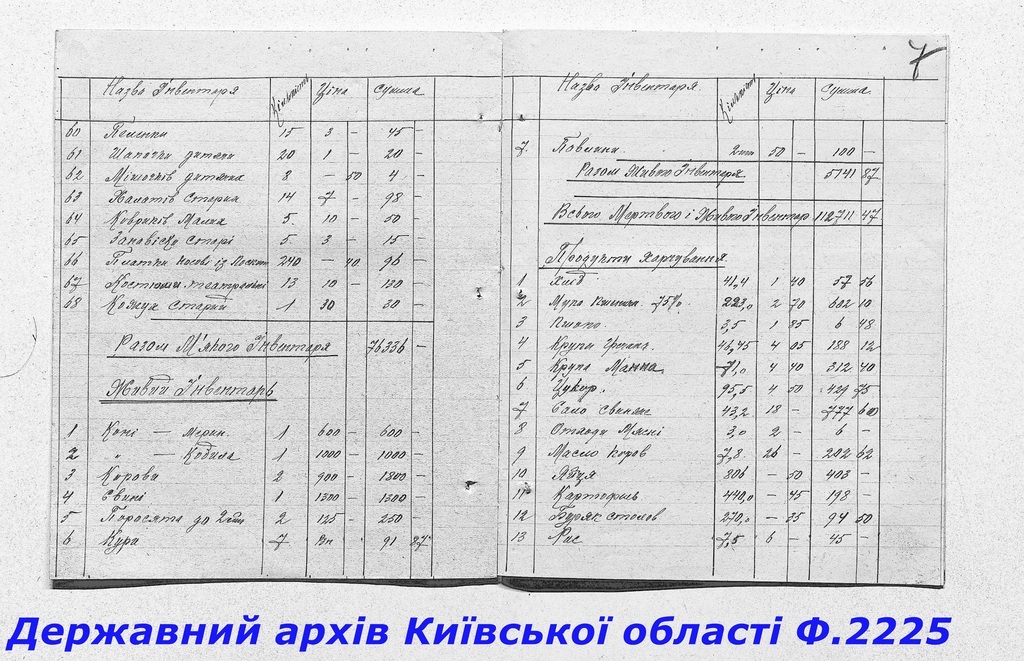 7
Назва Інвентаря Кількість Ціна Сумма
60 Пеленки 15 3 – 45 –
61 Шапочки дитячи 20 1 – 20 –
62 Мішочків дитячка 8 – 50 4 –
63 Халатів старих 14 7 – 98 –
64 Ковриків Малих 5 10 – 50 –
65 Занавіски старі 5 3 – 15 –
66 Платки носові із 240 – 40 96 –
67 Костюми театральні 13 10 – 130 –
68 Кожух старий 1 30 30 –
Разом М'якого Інвентаря 76336 –
Живий Інвентарь
1 Коні – Мерин 1 600 – 600 –
2 " – Кобила 1 1000 – 1000 –
3 Корови 2 900 – 1800 –
4 Свині 1 1300 – 1300 –
5 Поросята до 2 2 125 – 250 –
6 Кури 7 91 87
Назва Інвентаря Кількість Ціна Сумма
7 2 50 – 100 –
Разом Живого Інвентаря 5141 87
Всього Мертвого і Живого Інвентар 112711 47
Продукти харчування
1 Хліб 41,4 1 40 57 56
2 Мука 75% 223,0 2 70 602 10
3 Пшоно 3,5 1 85 6 48
4 Крупи Гречан. 46,45 4 05 188 12
5 Крупа Манна 71,0 4 40 312 40
6 Цукор. 95,5 4 50 429 75
7 Сало свиняче 43,2 18 – 777 60
8 Отходи Мясні 3,0 2 – 6 –
9 Масло коров 7,8 26 – 202 62
10 Яйця 806 – 50 403 –
11 Картофель 440,0 – 45 198 –
12 Буряк столов 270,0 – 35 94 50
13 Рис 7,5 6 – 45 –
Державний архів Київської області Ф.2225